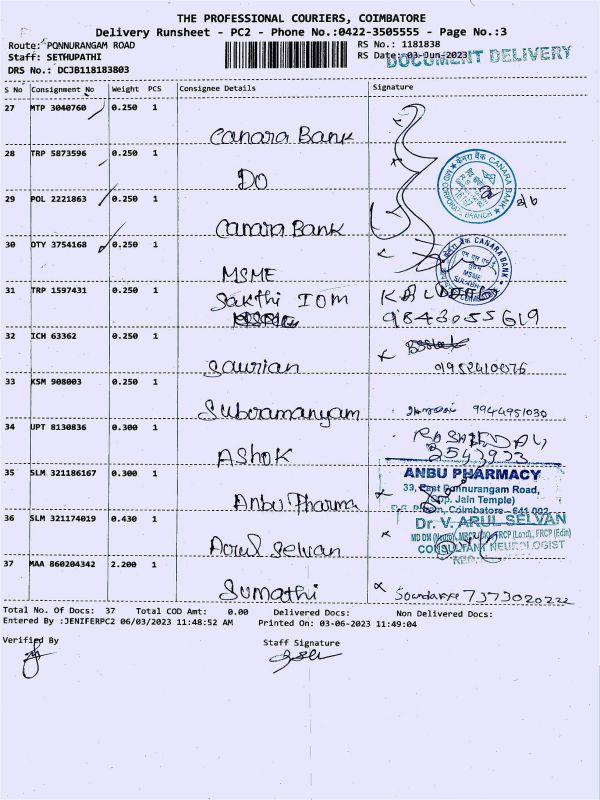 THE PROFESSIONAL COURIERS, COIMBATORE
Delivery Runsheet - PC2 - Phone No.:0422-3505555 - Page No.:3
Route: PONNURANGAM ROAD
RS No.: 1181838
Staff: SETHUPATHI
RS Date: 03-Jun-2023
DOCUMENT DELIVERY
DRS No.: DCJB118183803
S No Consignment No Weight PCS Consignee Details Signature
27 MTP 3040760 0.250 1
Canara Bank
28 TRP 5873596 0.250 1
DO
CANARA BANK
CORPORATE BRANCH
29 POL 2221863 0.250 1
Canara Bank
30 DTY 3754168 0.250 1
MSME
CANARA BANK
MSME
SULABH
31 TRP 1597431 0.250 1
Sakthi IOM
9843055619
32 ICH 63362 0.250 1
Saurian
9952410076
33 KSM 908003 0.250 1
Subramanyam
9944951030
34 UPT 8130836 0.300 1
Ashok
2543933
35 SLM 321186167 0.300 1
Anbu Pharma
ANBU PHARMACY
33, East Ponnurangam Road,
(Opp. Jain Temple)
Coimbatore - 641 002.
36 SLM 321174019 0.430 1
Arul Selvan
Dr. V. ARUL SELVAN
MD DM (Neuro), FRCP (Lond), FRCP (Edin)
CONSULTANT NEUROLOGIST
37 MAA 860204342 2.200 1
Sumathi
7373020222
Total No. Of Docs: 37 Total COD Amt: 0.00 Delivered Docs: Non Delivered Docs:
Entered By :JENIFERPC2 06/03/2023 11:48:52 AM Printed On: 03-06-2023 11:49:04
Verified By
Staff Signature